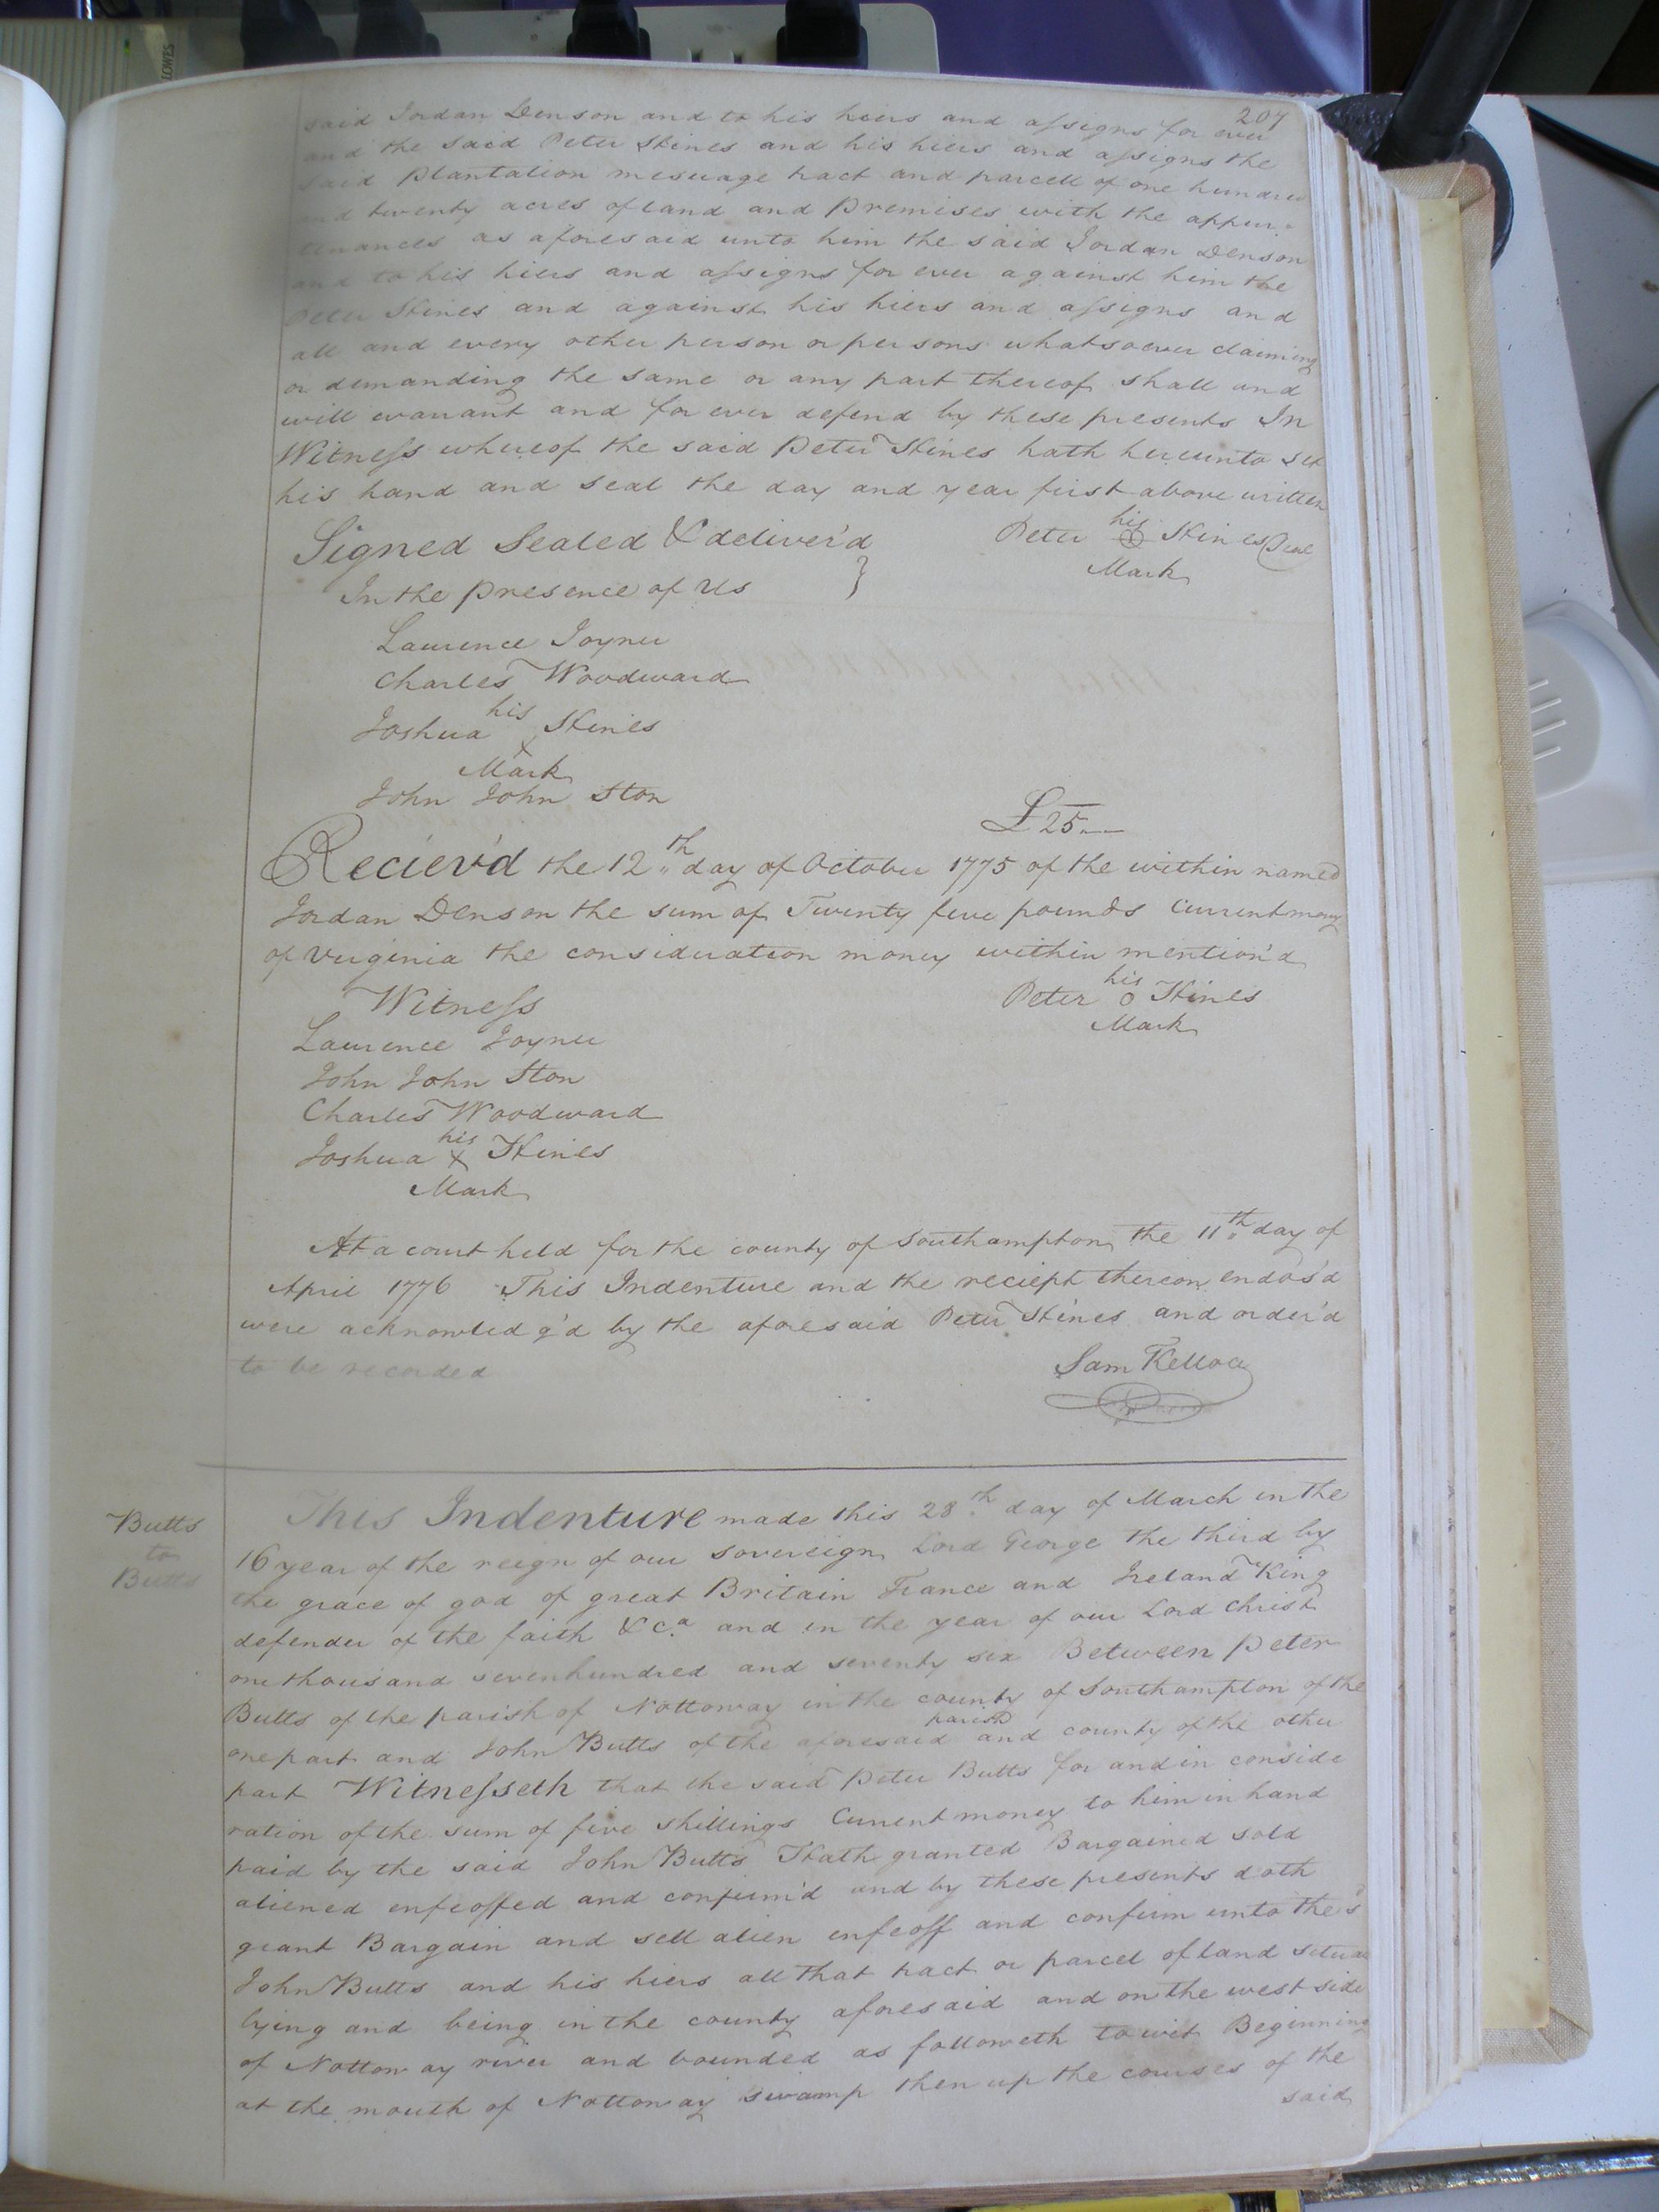 LOWES
207
said Jordan Denson and to his heirs and assigns for ever
and the said Peter Hines and his hiers and assigns the
said Plantation mesuage tract and parcell of one hundred
and twenty acres of land and Premises with the appur=
tenances as aforesaid unto him the said Jordan Denson
and to his hiers and assigns for ever against him the
Peter Hines and against his hiers and assigns and
all and every other person or persons whatsoever claiming
or demanding the same or any part thereof shall and
will warrant and for ever defend by these presents In
Witness whereof the said Peter Hines hath hereunto set
his hand and seal the day and year first above written
Signed Sealed & deliver'd
his
Peter Hines Seal
Mark
In the presence of Us
Laurence Joyner
Charles Woodward
his
Joshua x Hines
Mark
John John Ston
£25
Reciev'd the 12th day of October 1775 of the within named
Jordan Denson the sum of Twenty five pounds Current mony
of Virginia the consideration money within mention'd
Witness
his
Peter o Hines
Mark
Laurence Joyner
John John Ston
Charles Woodward
his
Joshua x Hines
Mark
At a court held for the county of Southampton the 11th day of
April 1776 This Indenture and the reciept thereon endos'd
were acknowledg'd by the aforesaid Peter Hines and order'd
to be recorded
Sam Kelloce
Butts
to
Butts
This Indenture made this 28th day of March in the
16 year of the reign of our sovereign Lord George the third by
the grace of god of great Britain France and Ireland King
defender of the faith &ca and in the year of our Lord Christ
one thousand seven hundred and seventy six Between Peter
Butts of the parish of Nottoway in the county of Southampton of the
parish
one part and John Butts of the aforesaid and county of the other
part Witnesseth that the said Peter Butts for and in conside
ration of the sum of five shillings Current money to him in hand
paid by the said John Butts Hath granted Bargained sold
aliened enfeoffed and confirm'd and by these presents doth
grant Bargain and sell alien enfeoff and confirm unto the s
John Butts and his hiers all that tract or parcel of land situate
lying and being in the county aforesaid and on the west side
of Nottoway river and bounded as followeth to wit Beginning
at the mouth of Nottoway Swamp then up the courses of the
said